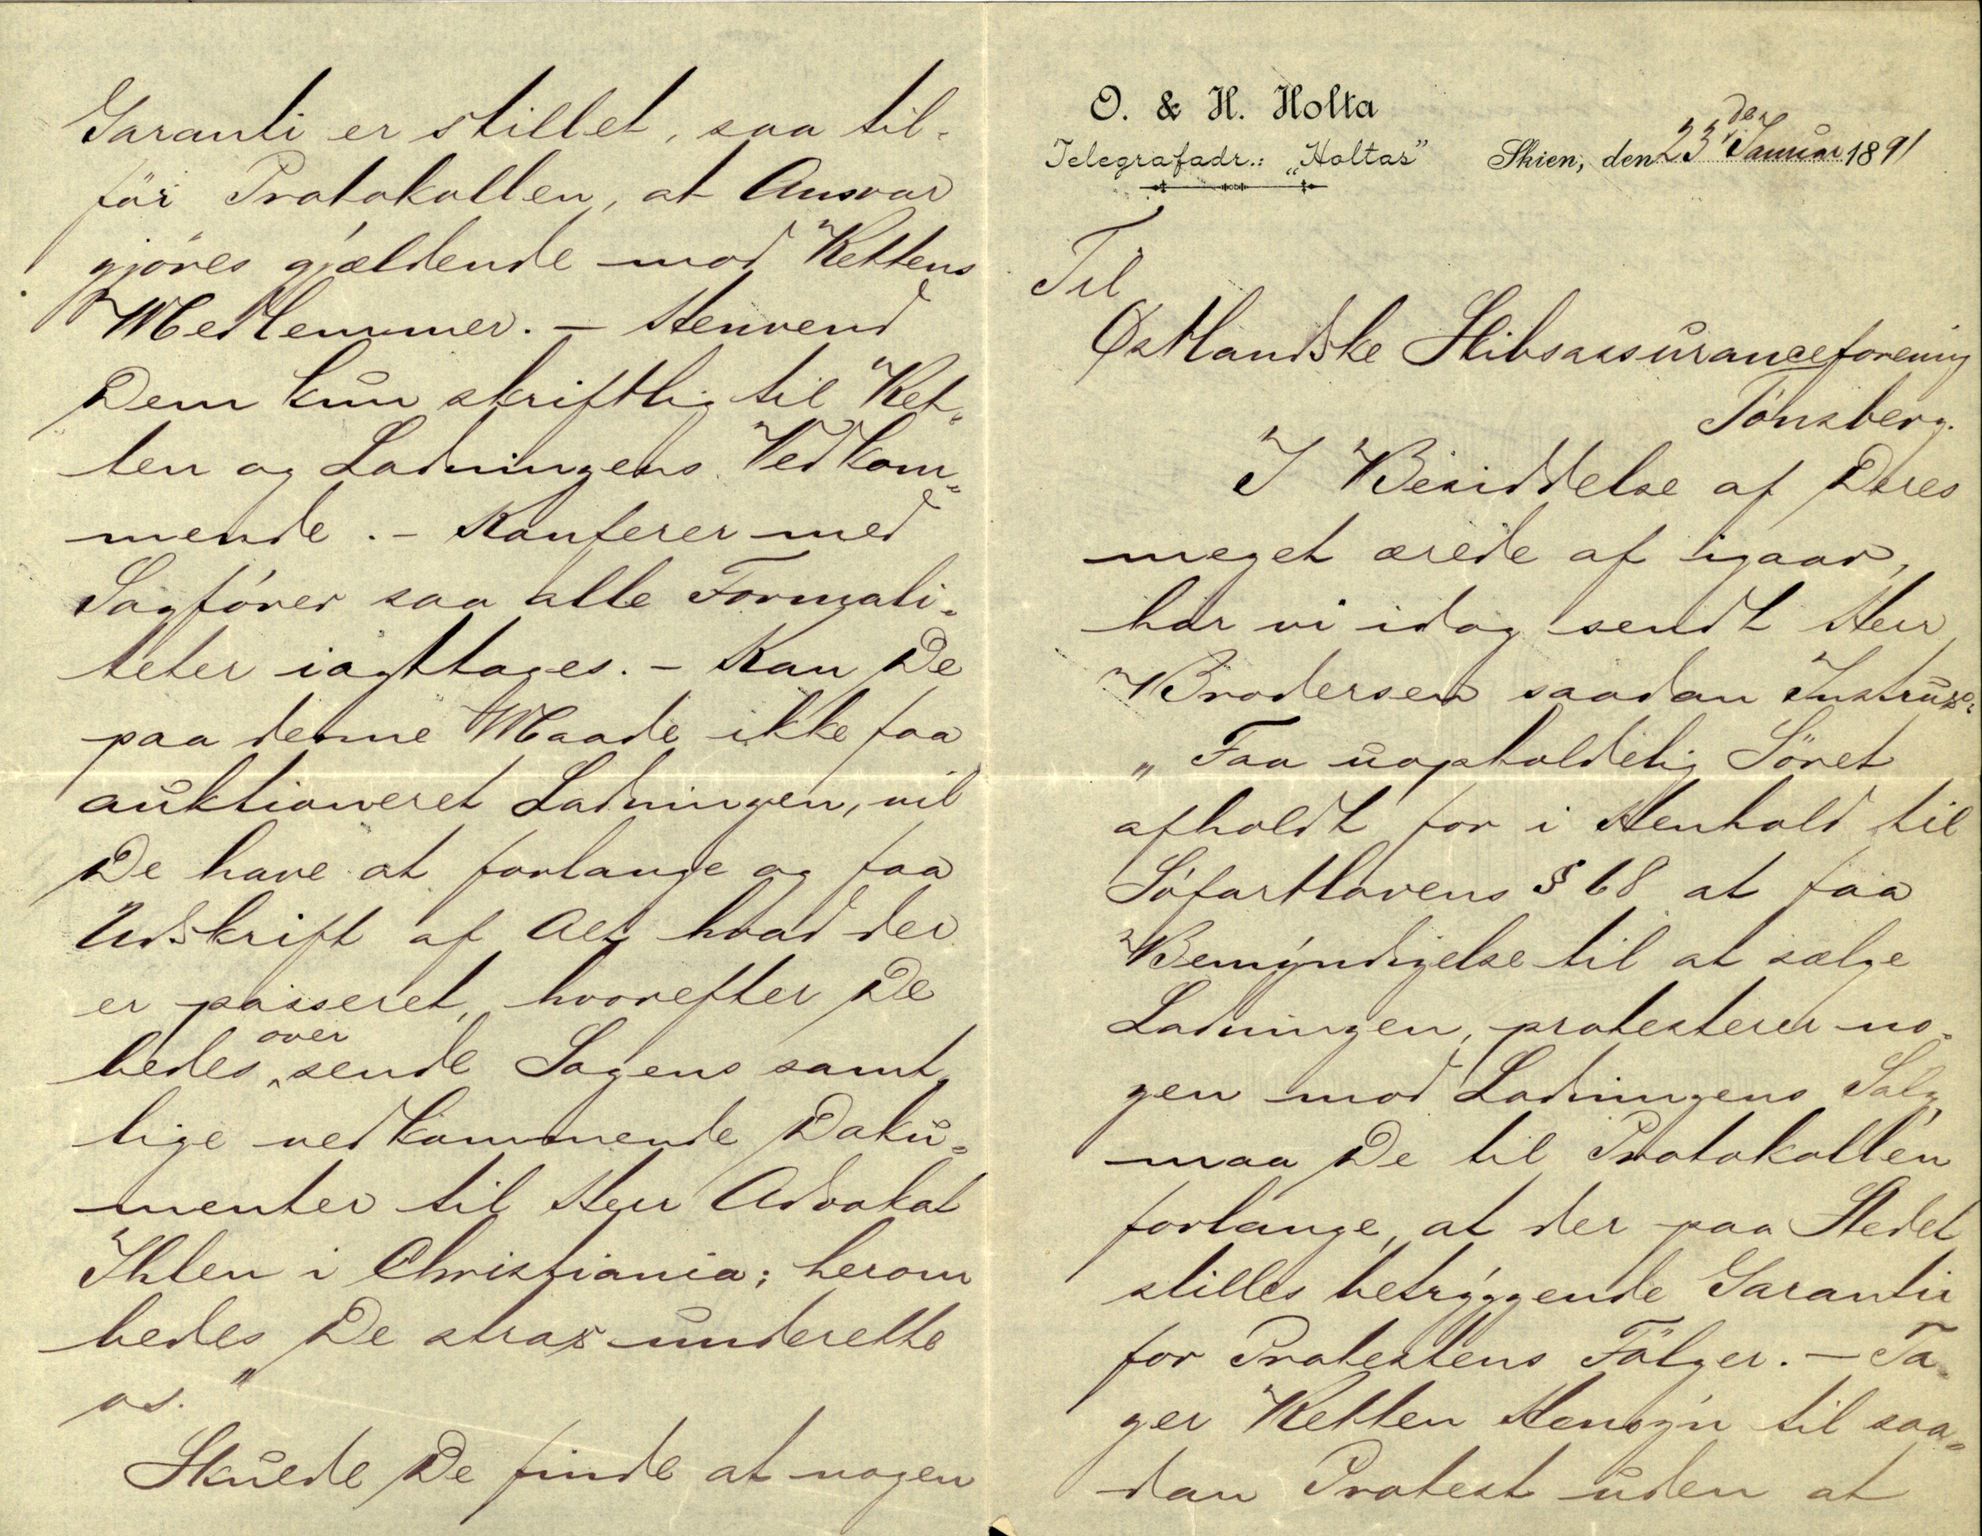 O. & H. Holta
Telegrafadr.: „Holtas” Skien, den 23 den Januar 1891
Til
Østlandske Skibsassuranceforening
Tönsberg.
I Besiddelse af Deres
meget ærede af igaar,
har vi idag sendt Herr
Brodersen saadan Instrux:
„Faa uopholdelig Söret
afholdt for i Henhold til
Söfartslovens § 68 at faa
Bemyndigelse til at sælge
Ladningen, protesterer no-
gen mod Ladningens Salg,
maa De til Protokollen
forlange, at der paa Stedet
stilles betryggende Garanti
for Protestens Fölger. – Ta-
ger Retten Hensyn til saa-
dan Protest uden at
Garanti er stillet, saa til-
för Protokollen, at Ansvar
gjöres gjældende mod Rettens
Medlemmer. – Henvend
Dem kun skriftlig til Ret-
ten og Ladningens Vedkom-
mende. – Konferer med
Sagförer saa alle Formali-
teter iagttages. – Kan De
paa denne Maade ikke faa
auktioneret Ladningen, vil
De have at forlange og faa
Udskrift af Alt hvad der
er passeret, hvorefter De
bedes oversende Sagens samt-
lige vedkommende Doku-
menter til Herr Advokat
Ihlen i Christiania; herom
bedes De strax underette
os.”
Skulde De finde at nogen